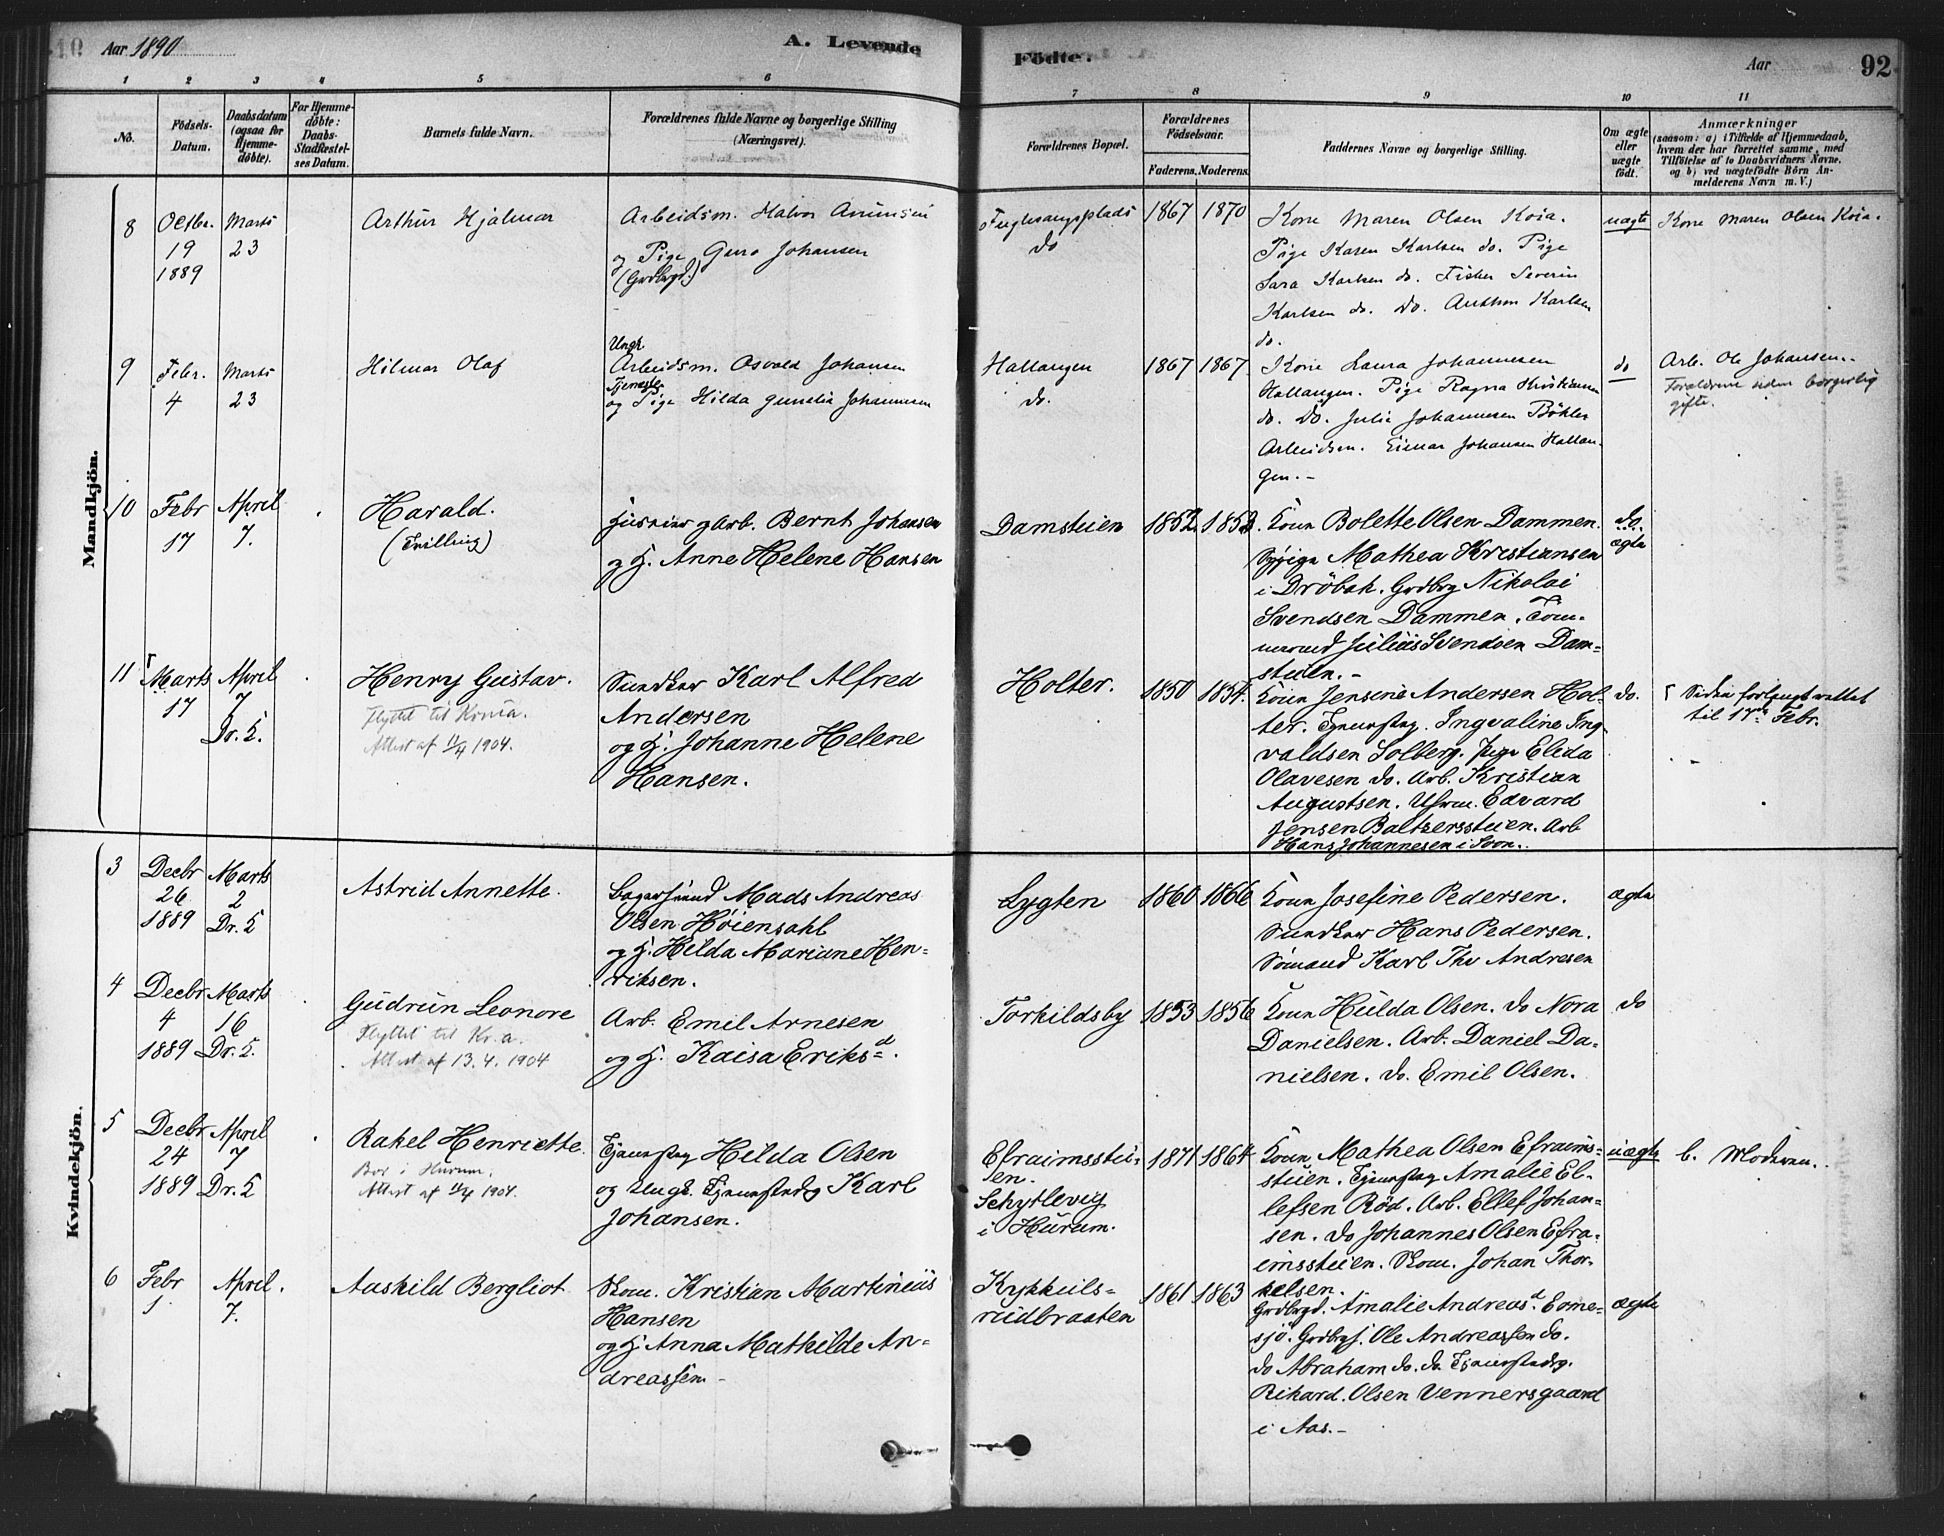 Aar 1890
A. Levende
Födte.
Aar
92
1 2 3 4 5 6 7 8 9 10 11
No.
Födsels-Datum.
Daabsdatum (ogsaa for Hjemme-döbte).
For Hjemme-döbte: Daabs-Stadfæstel-ses Datum.
Barnets fulde Navn.
Forældrenes fulde Navne og borgerlige Stilling (Næringsvei).
Forældrenes Bopæl.
Forældrenes Födselsaar.
Faderens. Moderens.
Faddernes Navne og borgerlige Stilling.
Om ægte eller uægte födt.
Anmærkninger
(saasom: a) i Tilfælde af Hjemmedaab, hvem der har forrettet samme, med Tilföielse af to Daabsvidners Navne. og b) ved uægtefödte Börn An-melderens Navn m. V.)
Mandkjön.
8
Octbr.
19
1889
Marts
23
Arthur Hjalmar
Arbeidsm. Halvor
og Pige Johansen
(Grdbrgd.)
do
1867 1870
Kone Maren Olsen Koia.
Pige Karen Karlsen do. Pige
Sara Karlsen do. Fisker Severin
Karlsen do. Do. Anthon Karlsen
do.
uægte
Kone Maren Olsen Koia.
9
Febr.
4
Marts
23
Hilmar Olaf
Ungk.
Arbeidsm. Osvald Johansen
og Pige Hilda Johannesen
Hallangen
do.
1867 1867
Kone Laura Johannesen
Hallangen. Pige Ragna Kristiansen
do. Do. Julie Johannesen Böhler
Arbeidsm. Einar Johansen Hallan-
gen.-
do
Arb. Ole Johansen.
Forældrene siden borgerlig
gifte.
10
Febr
17
April
7.
Harald.
(Tvilling)
Arb. Bernt Johansen
og H. Anne Helene Hansen
Damsteien
1852 1853
Kone Bolette Olsen Dammen.
Mathea Kristiansen
i Dröbak. Grdbrg Nikolai
Svendsen Dammen. Töm-
mermd Julius Svendsen Dam-
steien.-
do.
ægte
11
Marts
17
April
7
Dr. K.
Henry Gustav.
Flyttet til Kr.ia.
Attest af 11/4 1904.
Sundkar Karl Alfred
Andersen
og H. Johanne Helene
Hansen.
Holter.
1850 1854.
Kone Jensine Andersen Hol-
ter. Tjenestpg. Ingvaline Ing-
valdsen Solberg. Pige Elida
Olavesen do. Arb. Kristian
Augustsen. Edvard
Jensen Baltzerssteien. Arb
Hans Johannesen i Soon.
do.
Siden forlangt rettet
til 17de Febr.
Kvindekjön.
3
Decbr
26
1889
Marts
2
Dr. K
Astrid Annette.
Bagersvend Mads Andreas
Olsen Höiensahl
og H. Hilda Mariane Hen-
riksen.
Lygten
1860 1866
Kone Josefine Pedersen.
Sundkar Hans Pedersen.
Sömand Karl Thv Andresen
ægte
4
Decbr
4
1889
Marts
16
Dr. K.
Gudrun Leonore
Flyttet til Kr.a.
Attest af 13.4.1904
Arb. Emil Arnesen
og H. Kaisa Eriksd.
Torkildsby
1853 1856
Kone Hulda Olsen. do Nora
Danielsen. Arb. Daniel Da-
nielsen. do. Emil Olsen.
do
5
Decbr
24
1889
April
7
Dr. K
Rakel Henriette
Bor i Hurum.
Attest af 11/4 1904.
Tjenestpg Hilda Olsen
og Ungk. Karl
Johansen.
Efraimsstei-
en.
Schytlevig
i Hurum.
1871 1864
Kone Mathea Olsen Efraims-
steien. Tjenestpg Amalie El-
lefsen Röd. Arb. Ellef Johan-
sen. do Johannes Olsen Efra-
imssteien. Skom. Johan Thor-
kelsen.
uægte
b. Moderen.
6
Febr
1
April.
7.
Aaskild Bergliot
Skom. Kristian Martinius
Hansen
og H. Anna Mathilde An-
dreassen-
Krykkils-
rudbraaten
1861 1863
Grdbrgd. Amalie Andreasd. Eme-
sjö. Grdbrgs. Ole Andreassen do.
do Abraham do. do.
Rikard Olsen Vennersgaard
i Aas.-
ægte